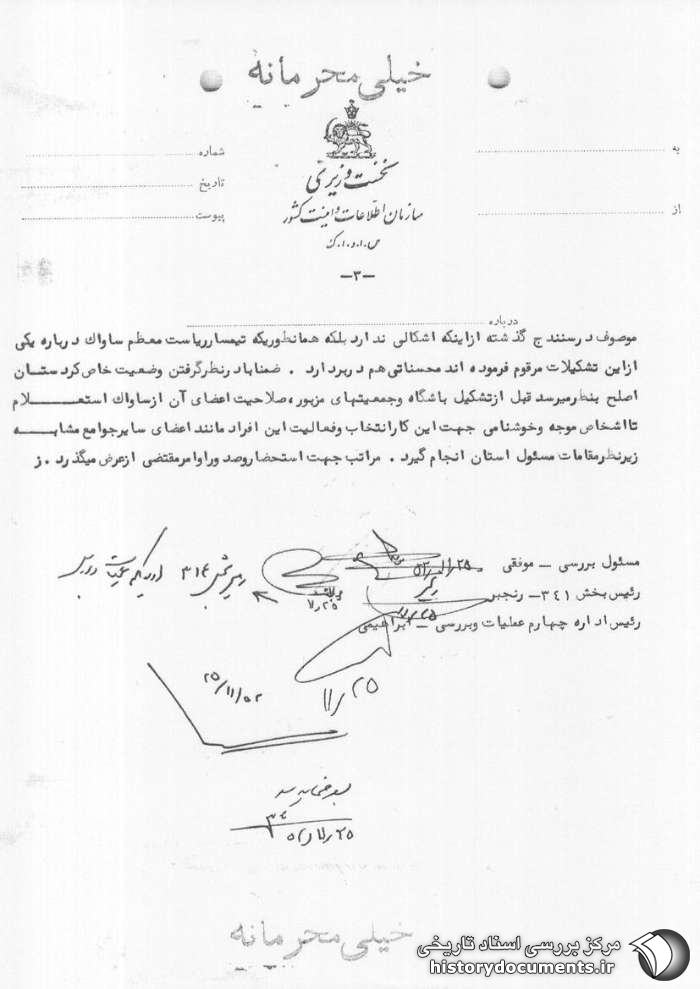 خیلی محرمانه
به
شماره
نخست وزیری
تاریخ
از
سازمان اطلاعات و امنیت کشور
پیوست
س.ا.و.ا.ک
-۳-
درباره
موصوف درسنندج گذشته ازاینکه اشکالی ندارد بلکه همانطوریکه تیمسارریاست معظم ساواک درباره یکی
ازاین تشکیلات مرقوم فرموده اند محسناتی هم دربردارد . ضمنابادرنظرگرفتن وضعیت خاص کردستان
اصلح بنظرمیرسد قبل ازتشکیل باشگاه وجمعیتهای مزبور،صلاحیت اعضای آن ازساواک استعلام
تااشخاص موجه وخوشنامی جهت این کارانتخاب وفعالیت این افراد مانند اعضای سایرجوامع مشابه
زیرنظرمقامات مسئول استان انجام گیرد . مراتب جهت استحضاروصدوراوامرمقتضی ازعرض میگذرد . ز
مسئول بررسی - موفقی
رئیس بخش ۳۴۱- رنجبر
رئیس اداره چهارم عملیات وبررسی - ابراهیمی
۲۵/۱۱
۲۵/۱۱/۵۲
۳۴
خیلی محرمانه
مرکز بررسی اسناد تاریخی
historydocuments.ir